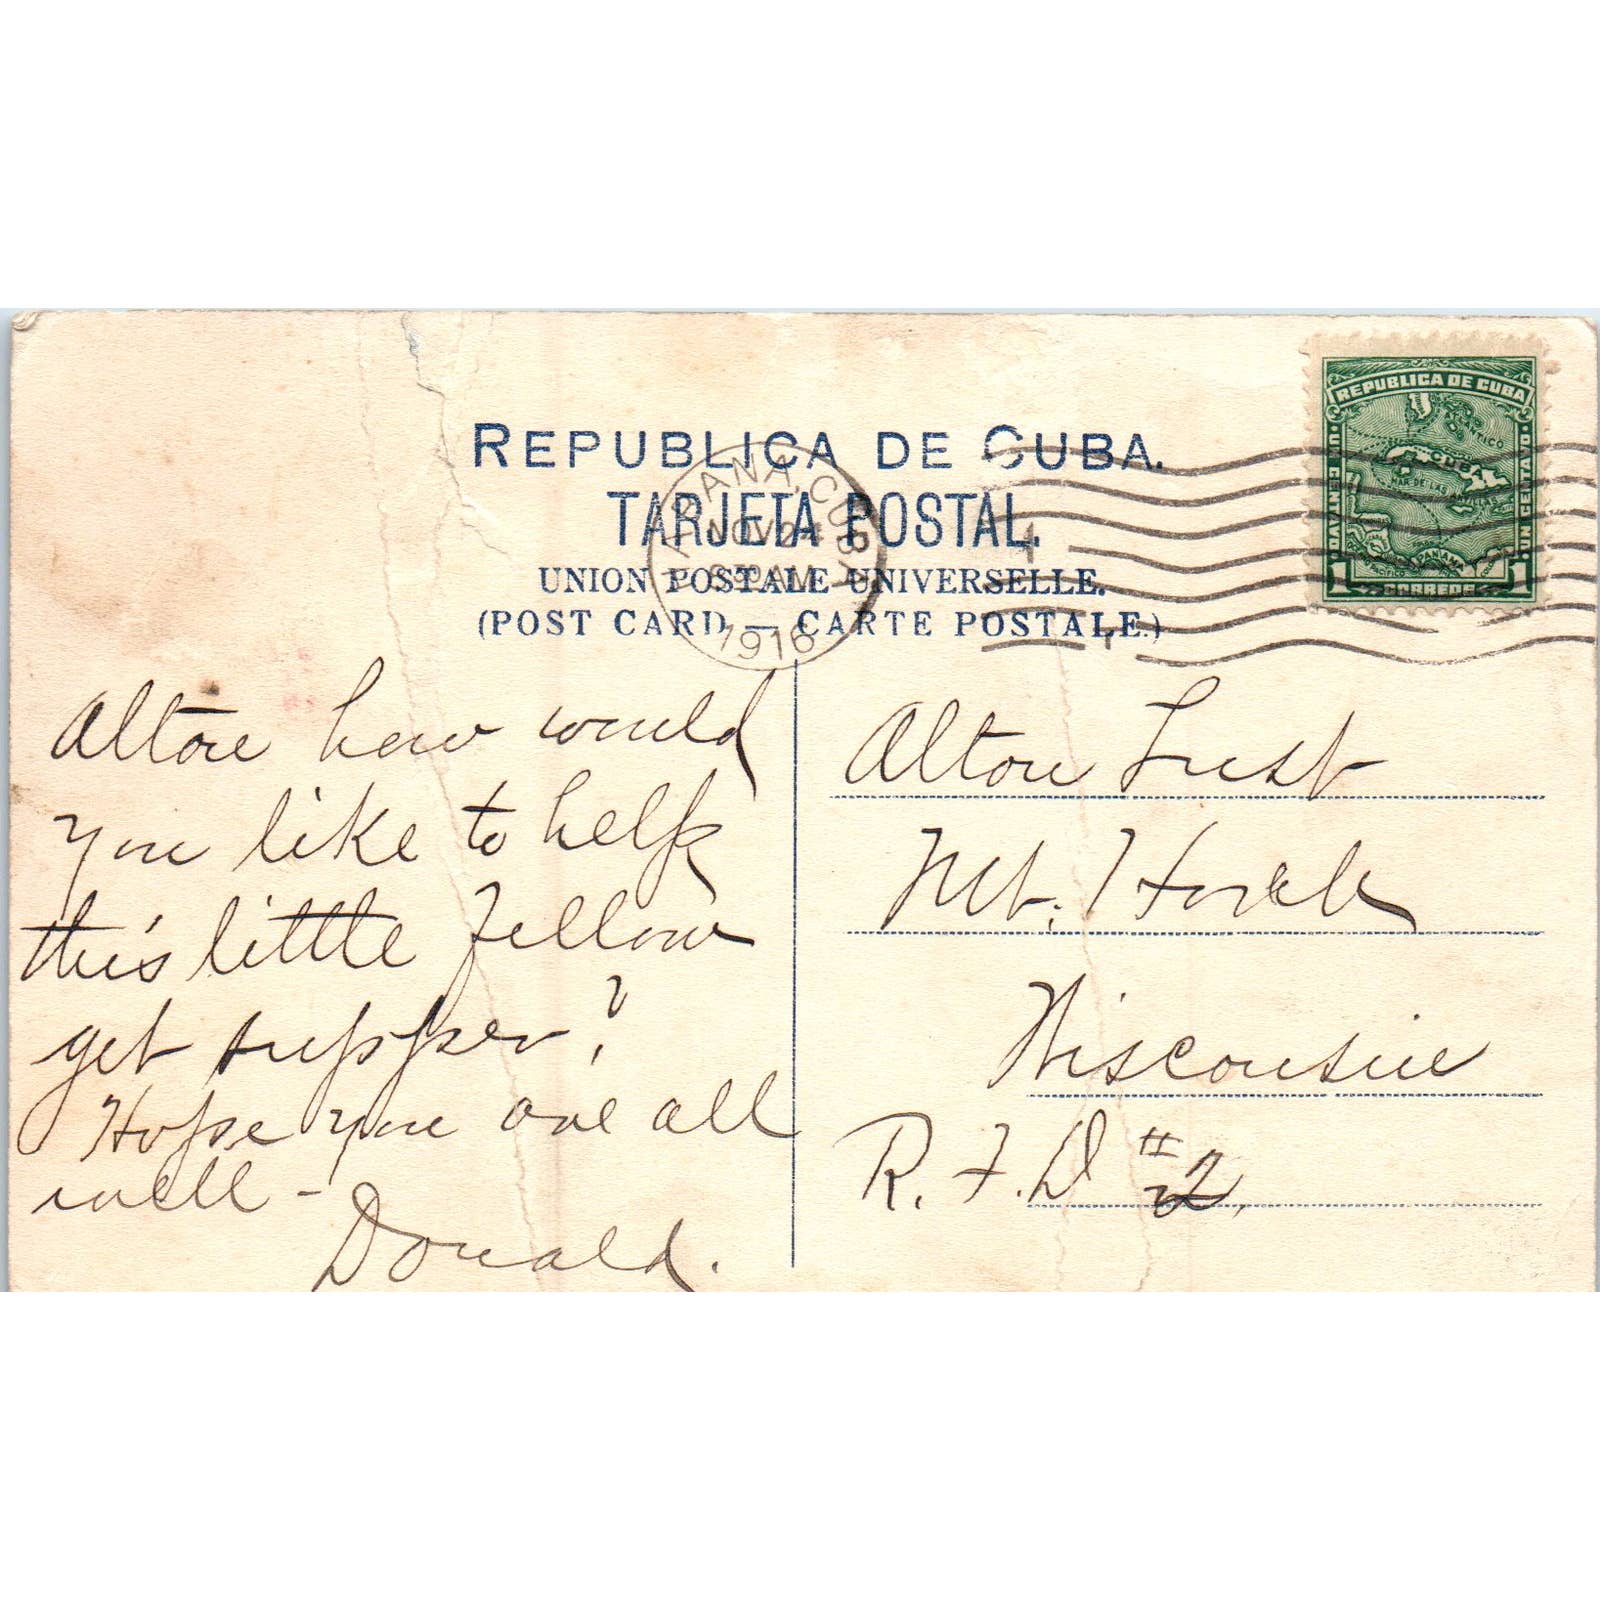 REPUBLICA DE CUBA.
TARJETA POSTAL.
UNION POSTALE UNIVERSELLE.
(POST CARD — CARTE POSTALE.)
HABANA, CUBA
NOV 24
AM
1916
REPUBLICA DE CUBA
UN CENTAVO
UN CENTAVO
ATLANTICO
CUBA
MAR DE LAS ANTILLAS
PANAMA
1 CORREOS 1
Alton how would
you like to help
this little fellow
get supper?
Hope you are all
well -
Donald.
Alton Lust
Mt. Horeb
Wisconsin
R. F. D #2.